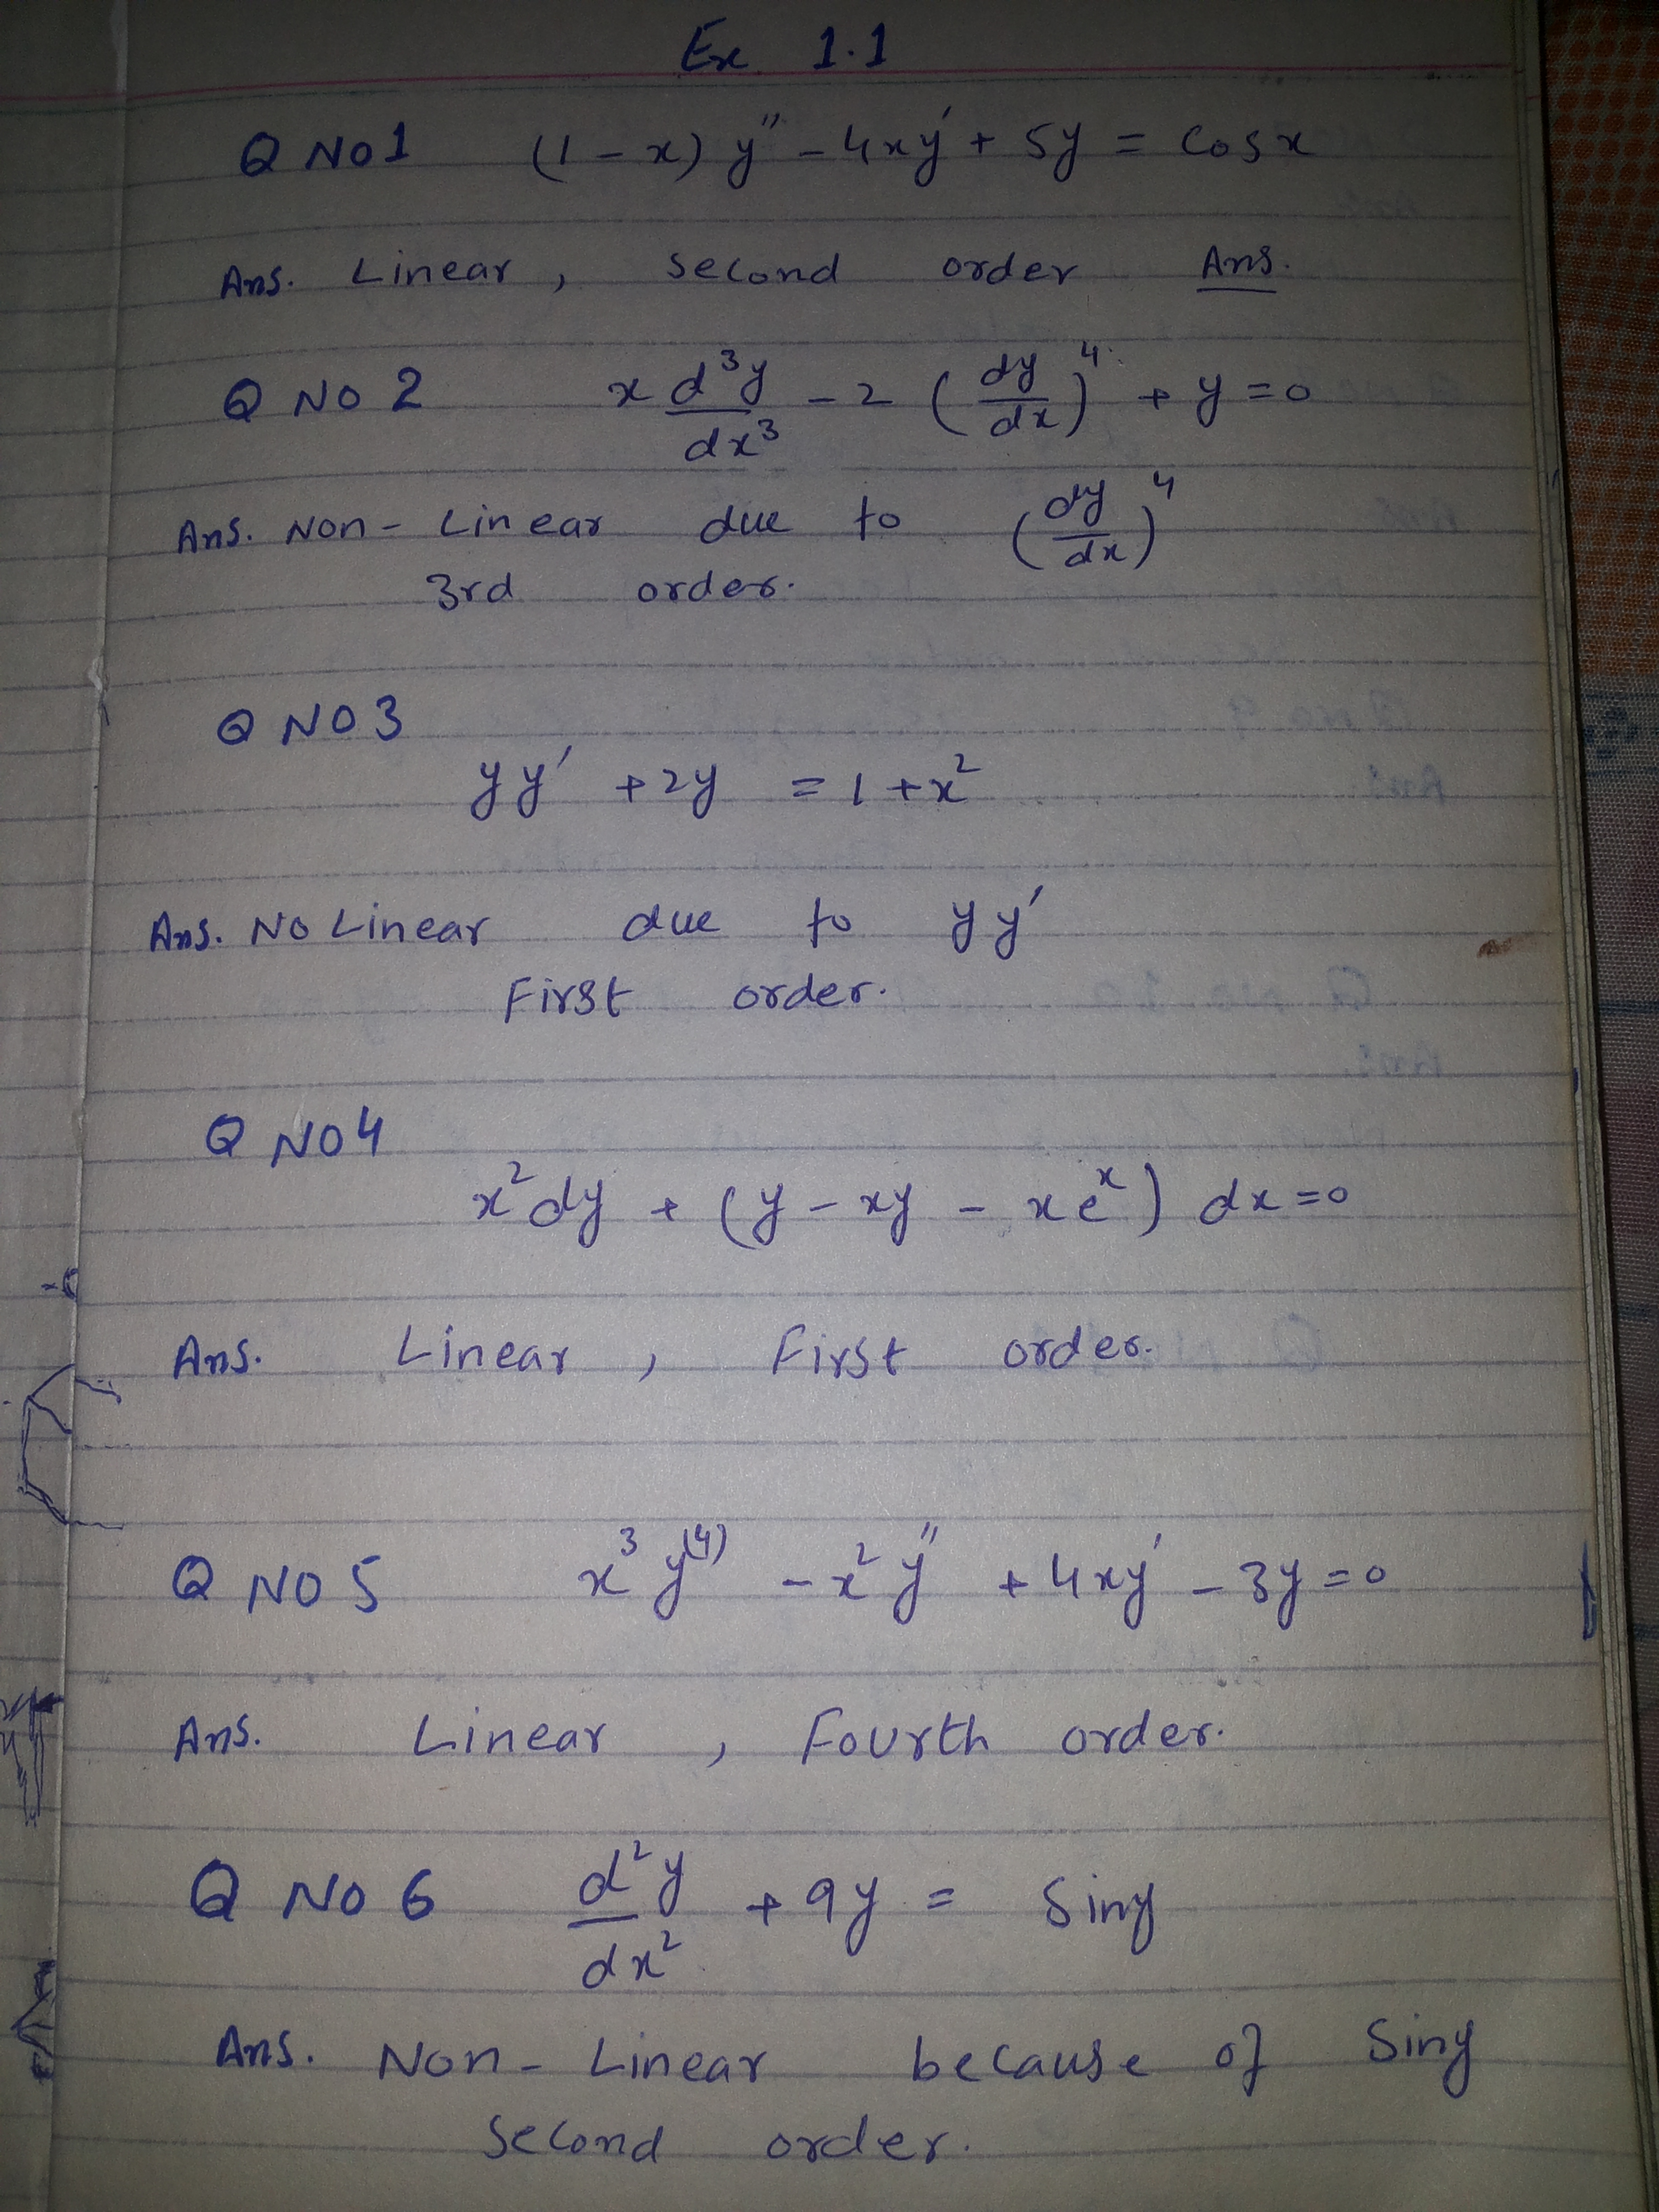 Ex 1.1
Q No 1 (1 - x) y'' - 4xy' + 5y = Cosx
Ans. Linear, second order Ans.
Q No 2 x d³y/dx³ - 2 (dy/dx)⁴ + y = 0
Ans. Non-Linear due to (dy/dx)⁴
3rd order.
Q NO 3
yy' + 2y = 1 + x²
Ans. No Linear due to yy'
First order.
Q NO 4
x²dy + (y - xy - xeˣ) dx = 0
Ans. Linear, First order.
Q NO 5 x³y⁽⁴⁾ - x²y'' + 4xy' - 3y = 0
Ans. Linear, Fourth order.
Q No 6 d²y/dx² + 9y = Siny
Ans. Non-Linear because of Siny
Second order.